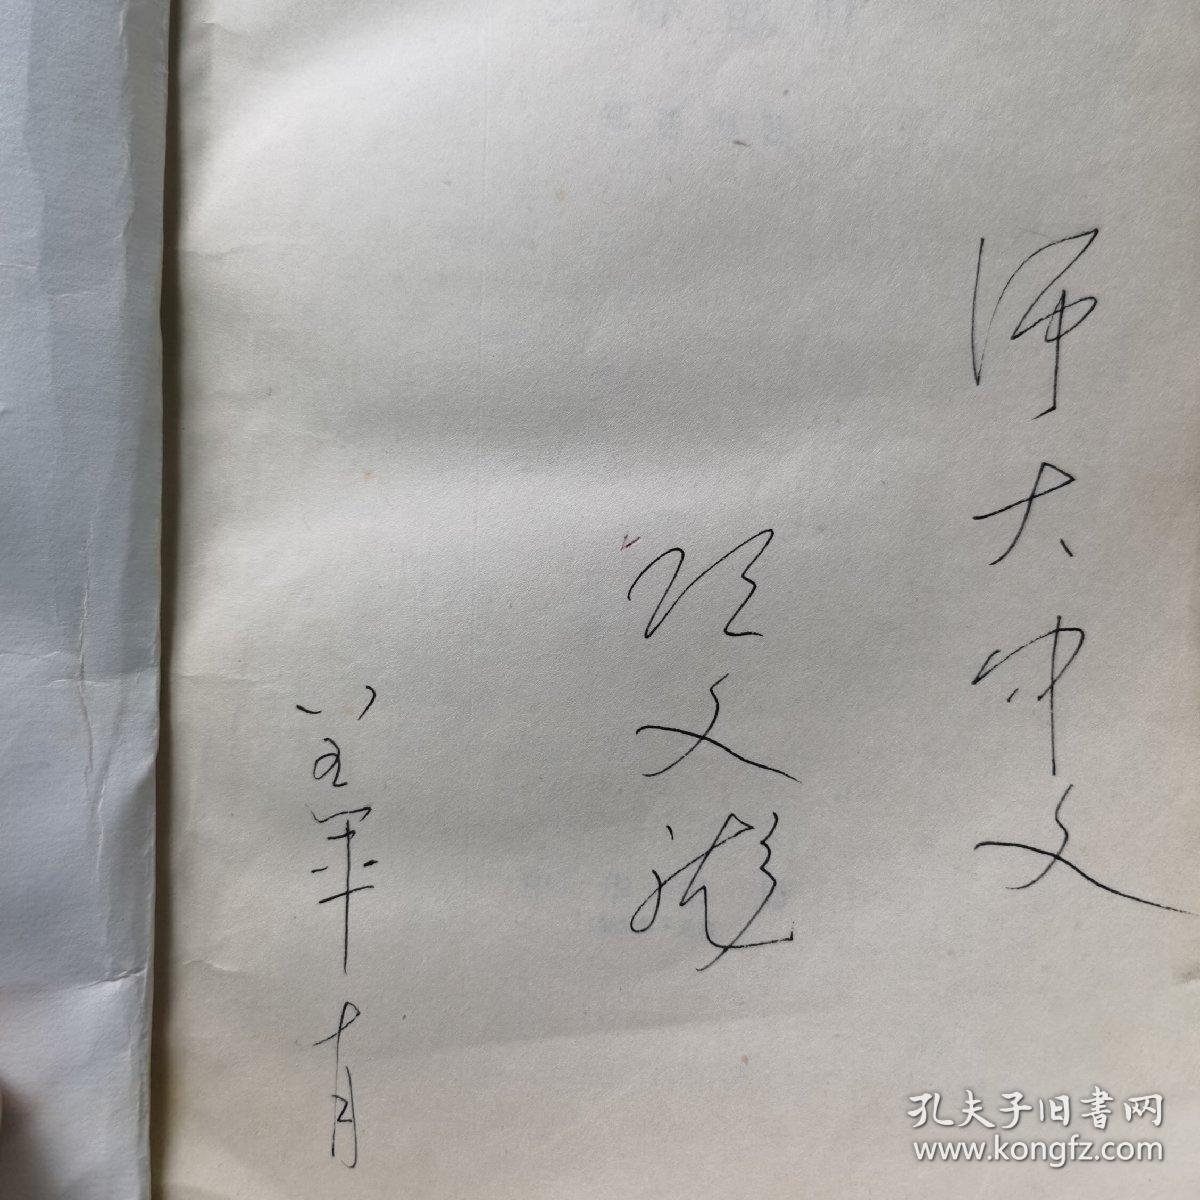 师大中文
文龙
八五年十月
孔夫子旧書网
www.kongfz.com